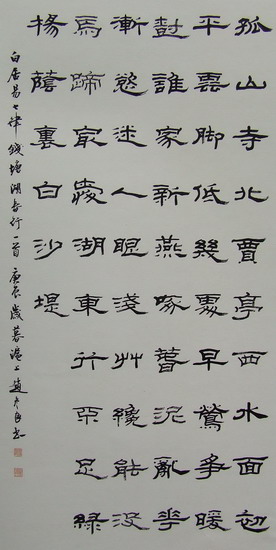 孤山寺北賈亭西水面初
平雲脚低幾處早鶯爭暖
尌誰家新燕啄萅泥亂華
漸慾迷人眼淺艸纔能没
馬蹄冣愛湖東行不足緑
楊蔭裏白沙堤
白居易七律錢塘湖春行一首 庚辰歲暮滬上趙